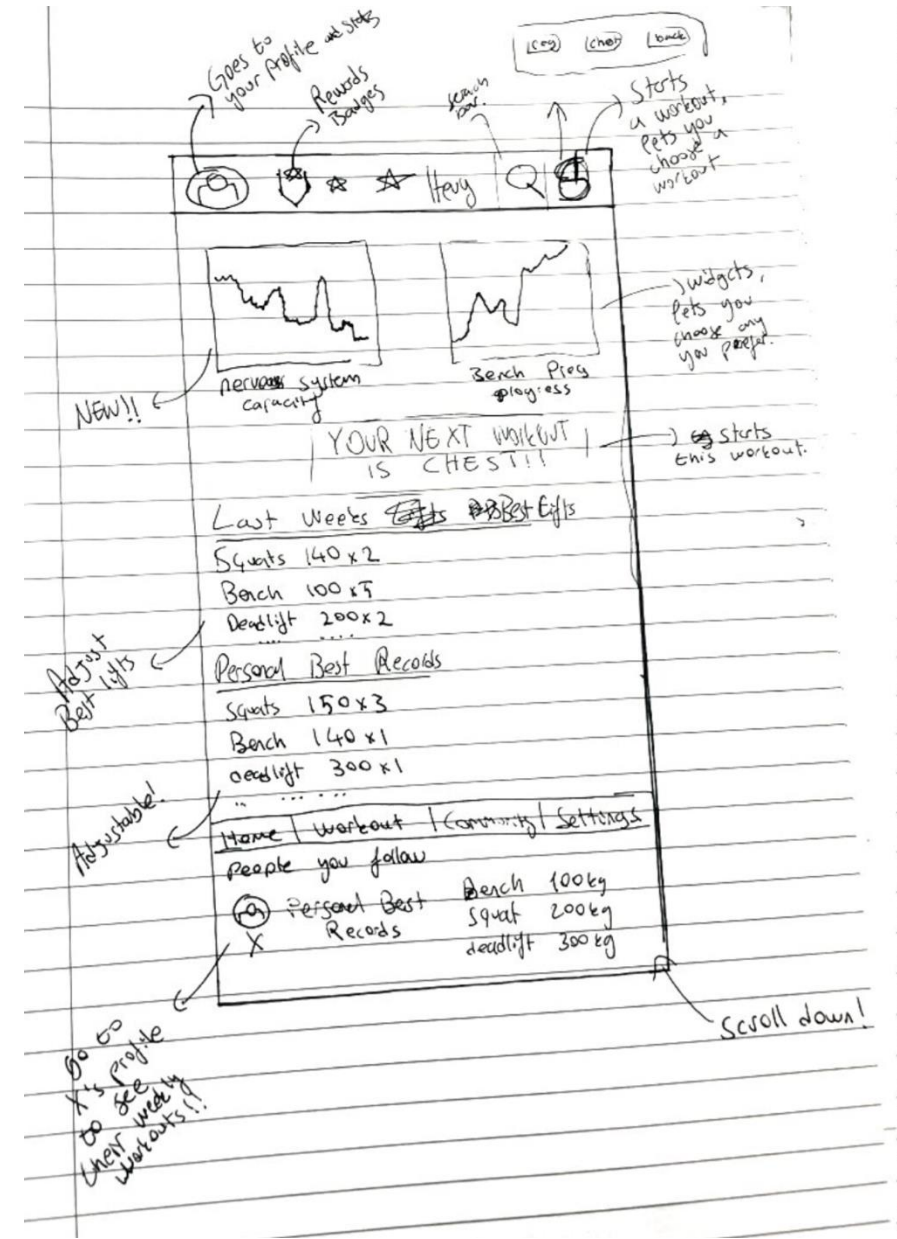 Goes to
your Profile and stats
Rewards
Badges
search
bar.
leg chest back
Starts
a workout,
lets you
choose a
workout
Hevy
nervous system
capacity
Bench Prog
progress
NEW!!
widgets,
lets you
choose any
you prefer.
YOUR NEXT WORKOUT
IS CHEST!!
starts
this workout.
Last Weeks Best Lifts
Squats 140 x 2
Bench 100 x 5
Deadlift 200 x 2
.... ....
Adjust
Best lifts
Personal Best Records
Squats 150 x 3
Bench 140 x 1
deadlift 300 x 1
.. ... ...
Adjustable!
Home | Workout | Community | Settings
People you follow
Personal Best
Records
X
Bench 100 kg
Squat 200 kg
deadlift 300 kg
Go to
X's profile
to see
their weekly
workouts!!
Scroll down!